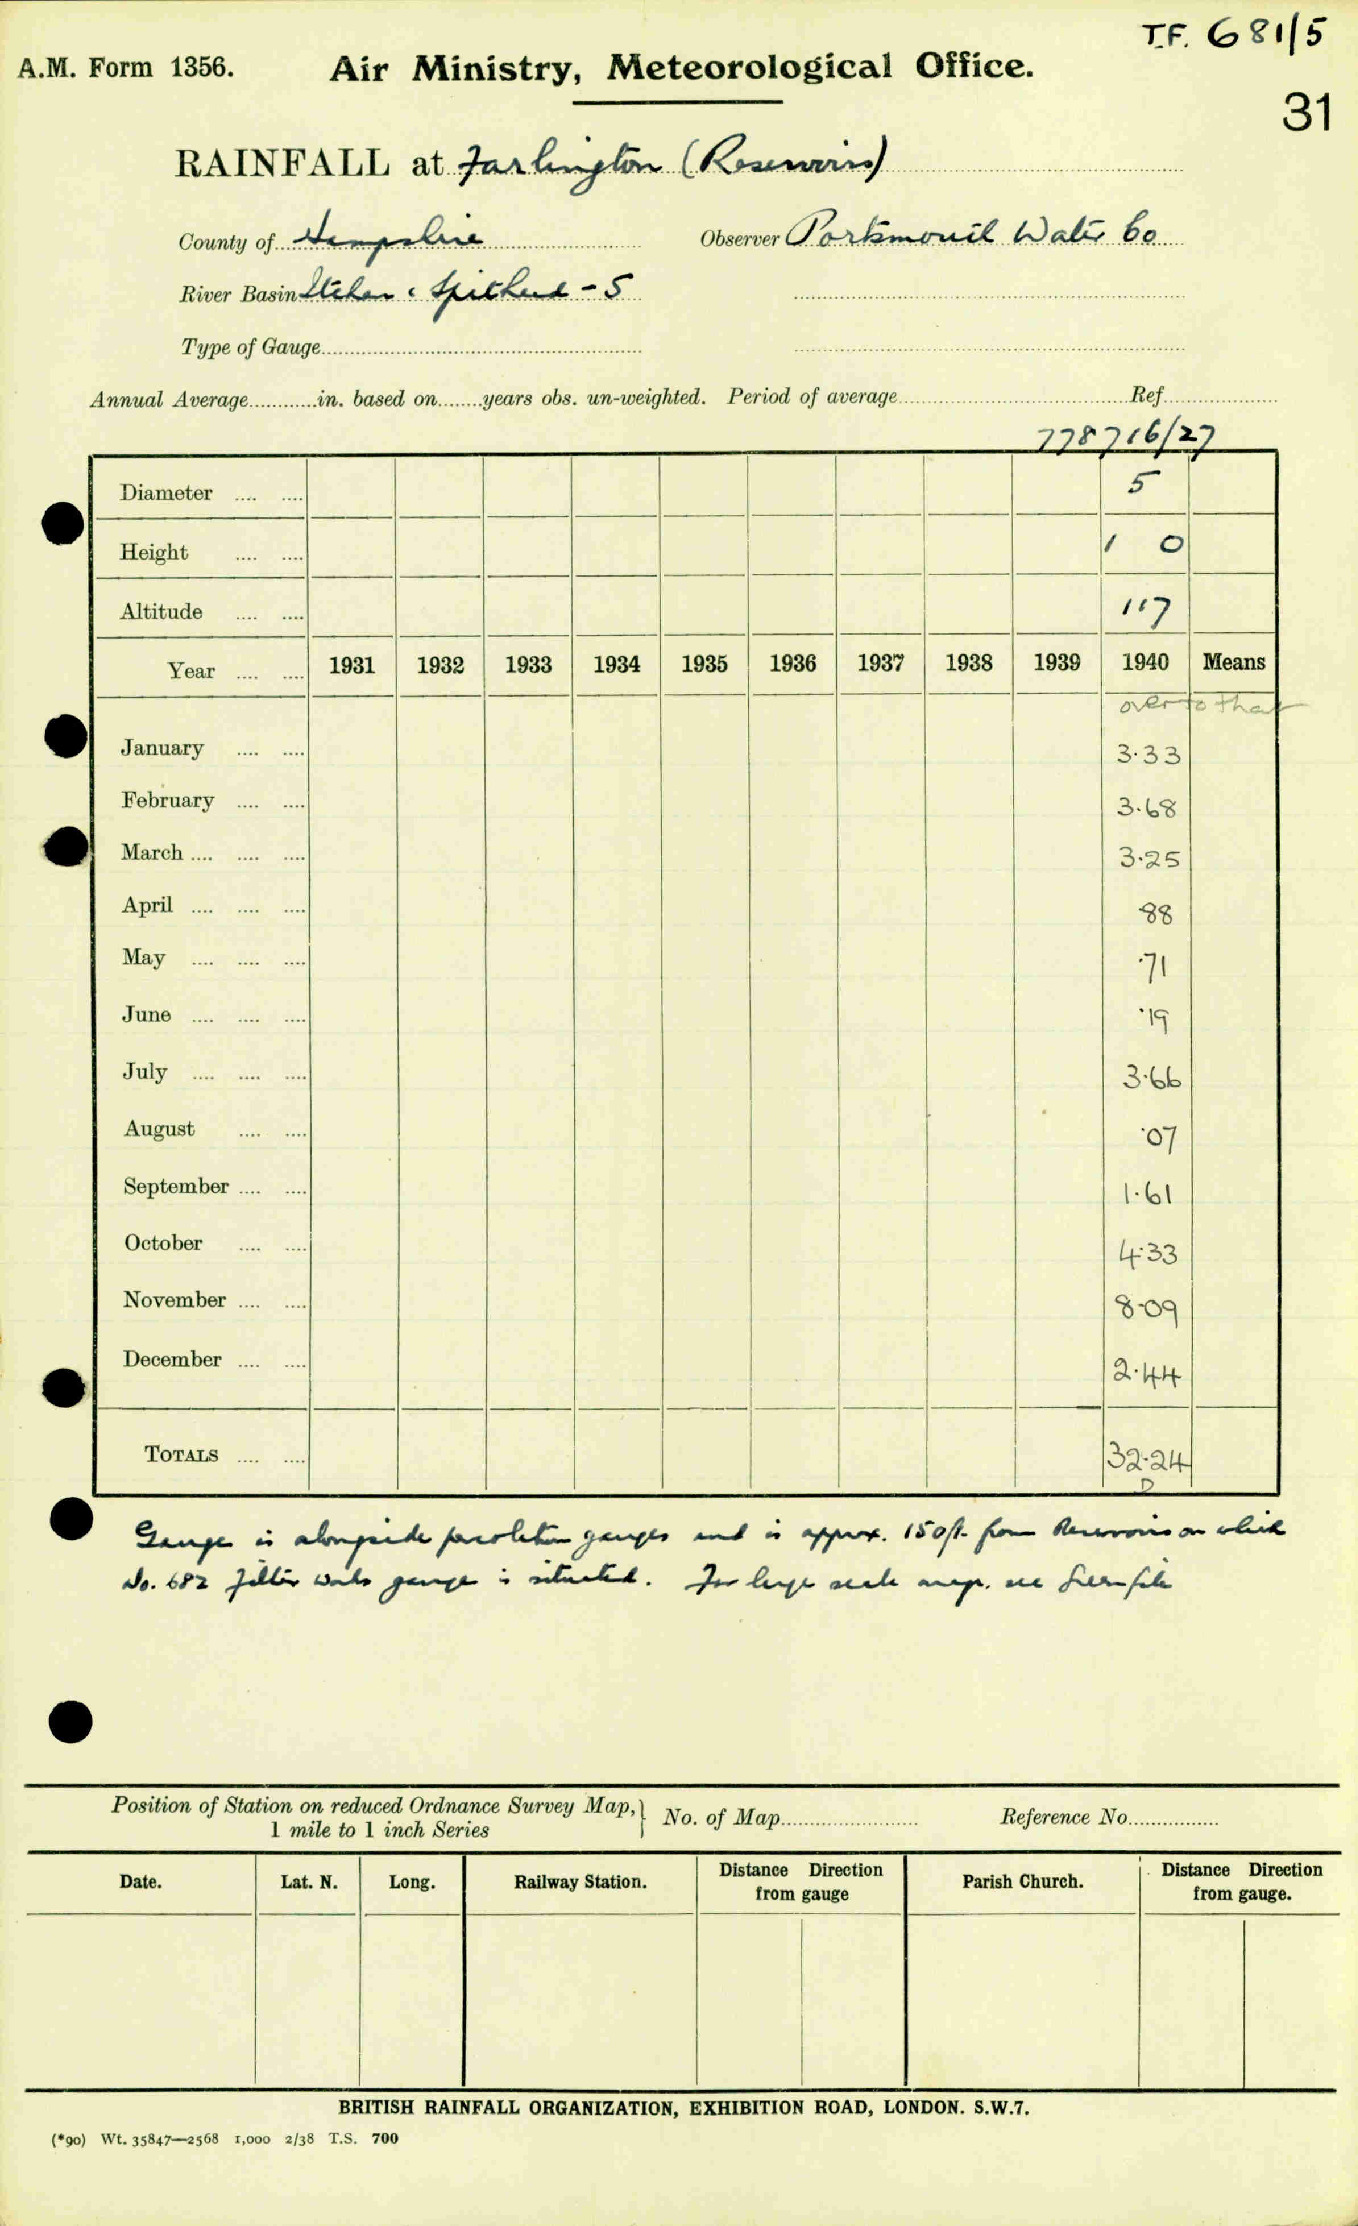 T.F. 681/5
A.M. Form 1356. Air Ministry, Meteorological Office.
31
RAINFALL at Farlington (Reservoirs)
County of Hampshire Observer Portsmouth Water Co
River Basin Itchen & Spithead - S
Type of Gauge
Annual Average in. based on years obs. un-weighted. Period of average Ref.
778716/27
Diameter 5
Height 1 0
Altitude 117
Year 1931 1932 1933 1934 1935 1936 1937 1938 1939 1940 Means
over to that
January 3.33
February 3.68
March 3.25
April .88
May .71
June .19
July 3.66
August .07
September 1.61
October 4.33
November 8.09
December 2.44
TOTALS 32.24
D
Gauge is alongside percolation gauges and is approx. 150ft. from Reservoirs on which
No. 682 Filter Works gauge is situated. For large scale map. see Green file
Position of Station on reduced Ordnance Survey Map, 1 mile to 1 inch Series } No. of Map Reference No.
Date. Lat. N. Long. Railway Station. Distance Direction from gauge Parish Church. Distance Direction from gauge.
BRITISH RAINFALL ORGANIZATION, EXHIBITION ROAD, LONDON. S.W.7.
(*90) Wt. 35847—2568 1,000 2/38 T.S. 700